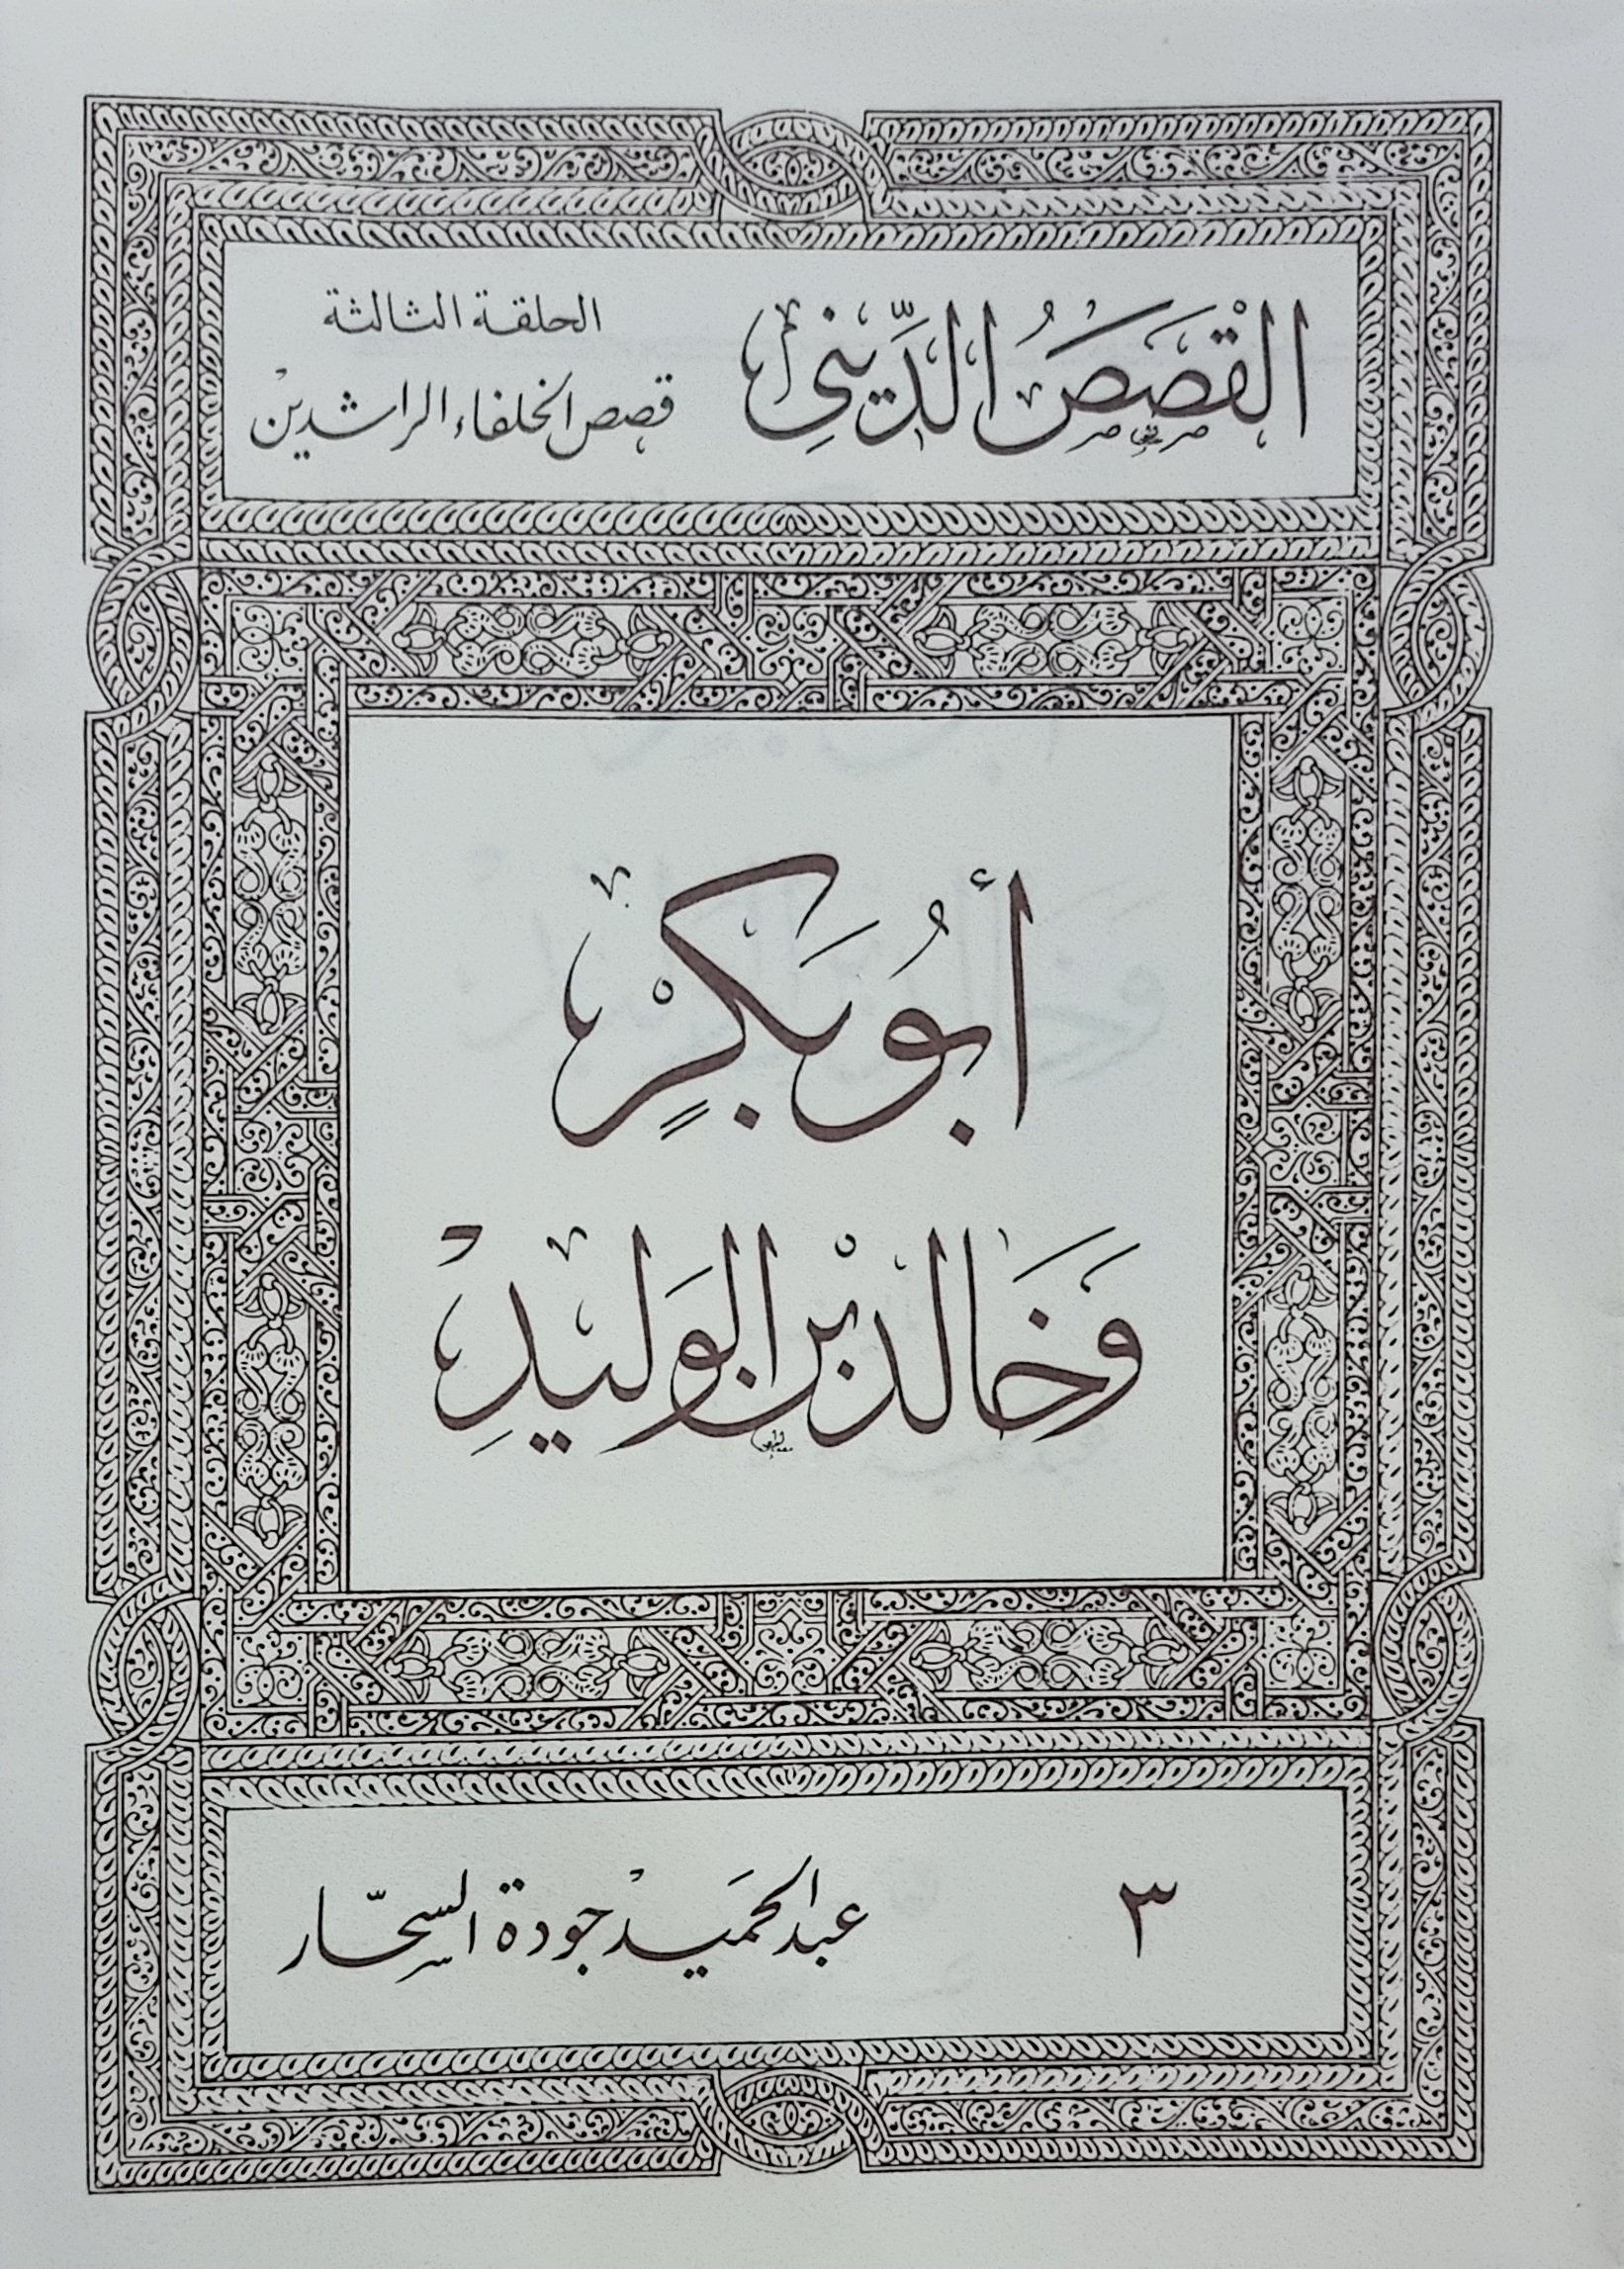 القَصَصُ الدِّينِي
الحلقة الثالثة
قصص الخلفاء الراشدين
أَبُو بَكْرٍ
وَخَالِد بْن الوَليدِ
٣
عبد الحميد جودة السحّار